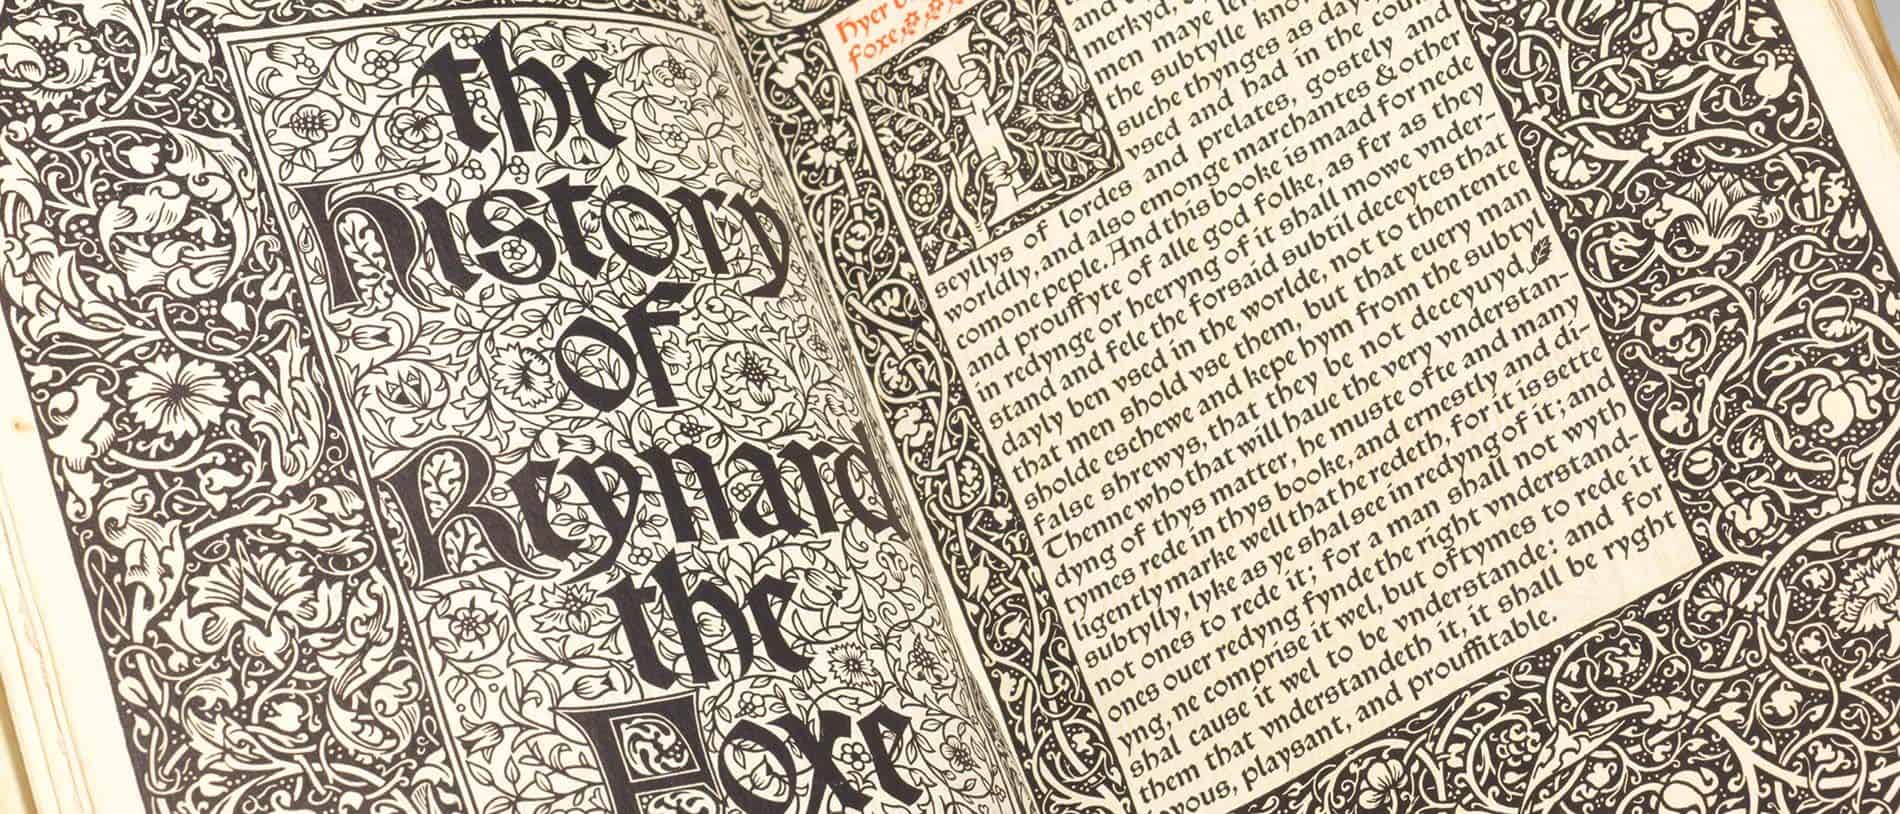 the
history
of
Reynard
the
Foxe
hyer
foxe
and
merkyd,
men maye
the subtylle
suche thynges as
vsed and had in the
scyllys of lordes and prelates, gostely and
worldly, and also emonge marchantes & other
comone peple. And this booke is maad for nede
and prouffyte of alle god folke, as fer as they
in redynge or heeryng of it shall mowe vnder-
stand and fele the forsaid subtil deceytes that
dayly ben vsed in the worlde, not to thentente
that men shold vse them, but that euery man
sholde eschewe and kepe hym from the subtyl
false shrewys, that they be not deceyuyd.
Thenne who that will haue the very vnderstan-
dyng of thys matter, he muste ofte and many
tymes rede in thys booke, and ernestly and di-
ligently marke well that he redeth, for it is sette
subtylly, lyke as ye shal see in redyng of it; and
not ones to rede it; for a man shall not wyth
ones ouer redyng fynde the right vnderstand-
yng, ne comprise it wel, but oftymes to rede it
shal cause it wel to be vnderstande: and for
them that vnderstandeth it, it shall be ryght
ioyous, playsant, and prouffitable.